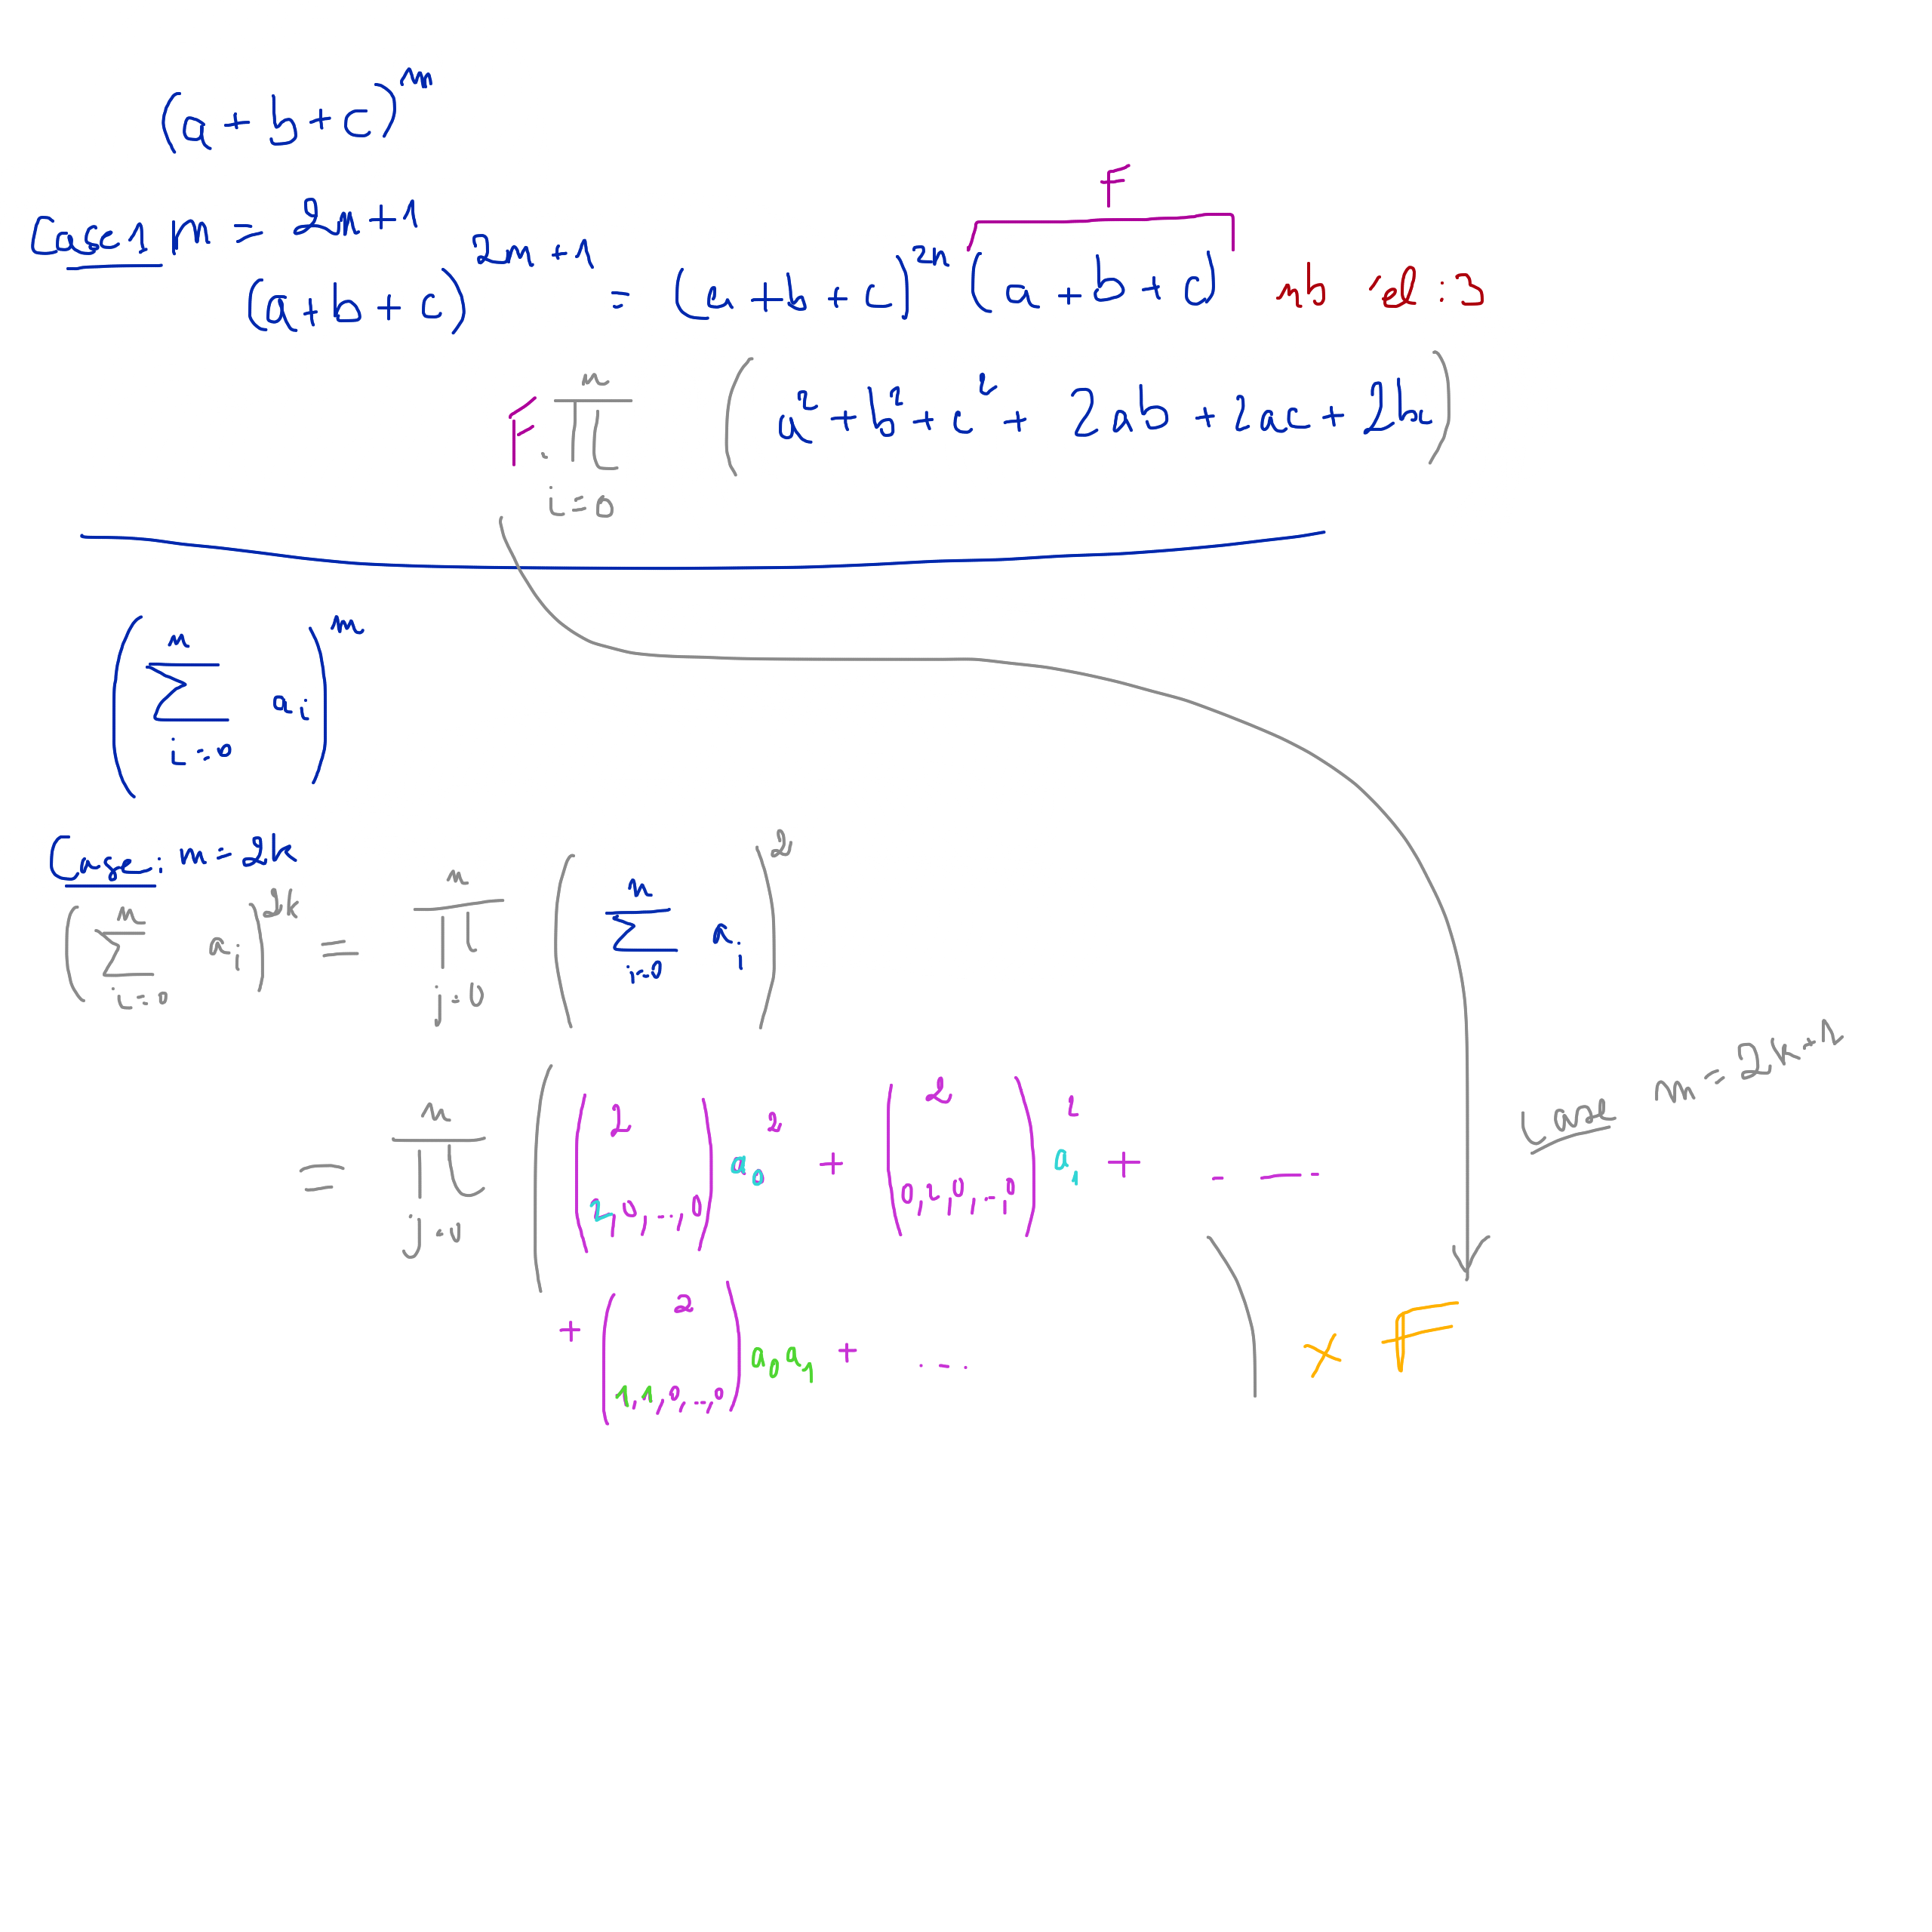 (a + b + c)^m
Case 1 m = 2n+1
F
(a + b + c)^{2n+1} = (a + b + c)^{2n} (a + b + c) nb el : 3
F . ∏_{i=0}^{n} (a² + b² + c² + 2ab + 2ac + 2bc)
(∑_{i=0}^{n} a_i)^m
Case : m = 2k
(∑_{i=0}^{n} a_i)^{2k} = ∏_{j=0}^{n} (∑_{i=0}^{n} a_i)^2
Case m = 2k+1
= ∏_{j=0}^{n} ( (2 \\ 2,0,...,0) a_0^2 + (2 \\ 0,2,0,...,0) a_1^2 + - --- -
+ (2 \\ 1,1,0,...,0) a_0 a_1 + ... ) × F